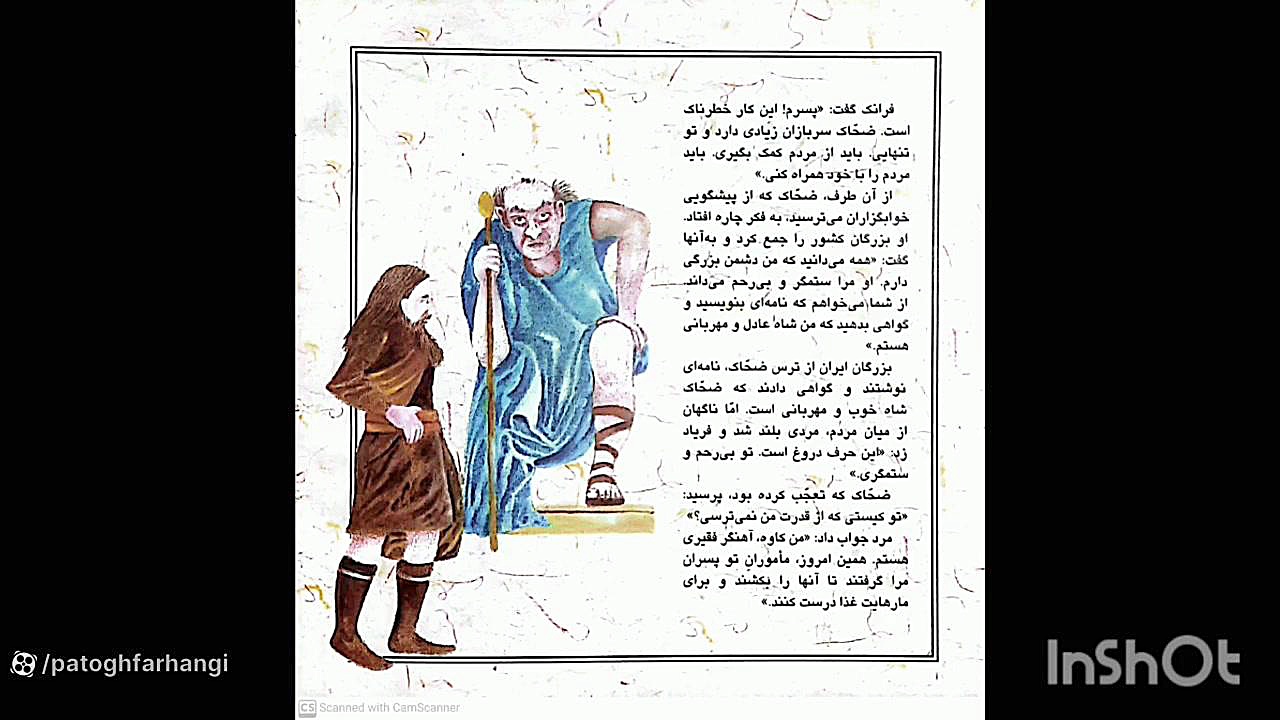 فرانک گفت: «پسرم! این کار خطرناک
است. ضحّاک سربازان زیادی دارد و تو
تنهایی. باید از مردم کمک بگیری. باید
مردم را با خود همراه کنی.»
از آن طرف، ضحّاک که از پیشگویی
خوابگزاران می‌ترسید، به فکر چاره افتاد.
او بزرگان کشور را جمع کرد و به‌آنها
گفت: «همه می‌دانید که من دشمن بزرگی
دارم. او مرا ستمگر و بی‌رحم می‌داند.
از شما می‌خواهم که نامه‌ای بنویسید و
گواهی بدهید که من شاه عادل و مهربانی
هستم.»
بزرگان ایران از ترس ضحّاک، نامه‌ای
نوشتند و گواهی دادند که ضحّاک
شاه خوب و مهربانی است. امّا ناگهان
از میان مردم، مردی بلند شد و فریاد
زد: «این حرف دروغ است. تو بی‌رحم و
ستمگری.»
ضحّاک که تعجّب کرده بود، پرسید:
«تو کیستی که از قدرت من نمی‌ترسی؟»
مرد جواب داد: «من کاوه، آهنگر فقیری
هستم. همین امروز، مأمورانِ تو پسران
مرا گرفتند تا آنها را بکشند و برای
مارهایت غذا درست کنند.»
/patoghfarhangi
InShOt
CS Scanned with CamScanner